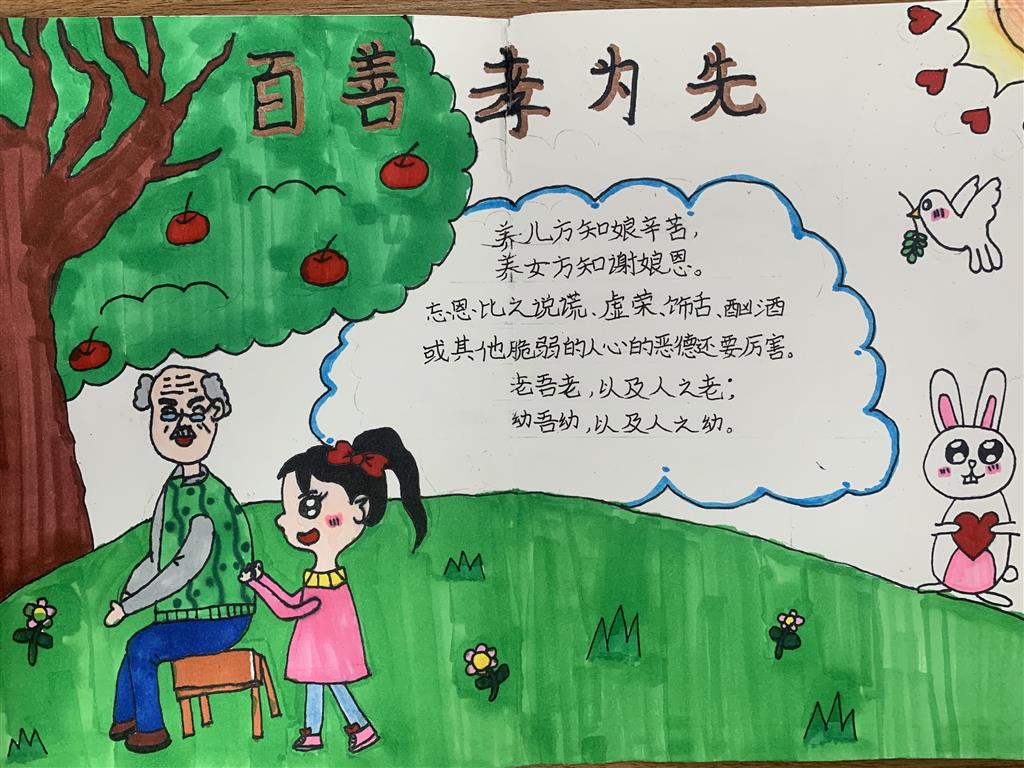 百善孝为先
养儿方知娘辛苦,
养女方知谢娘恩。
忘恩比之说谎、虚荣、饰舌、酗酒
或其他脆弱的人心的恶德还要厉害。
老吾老,以及人之老;
幼吾幼,以及人之幼。